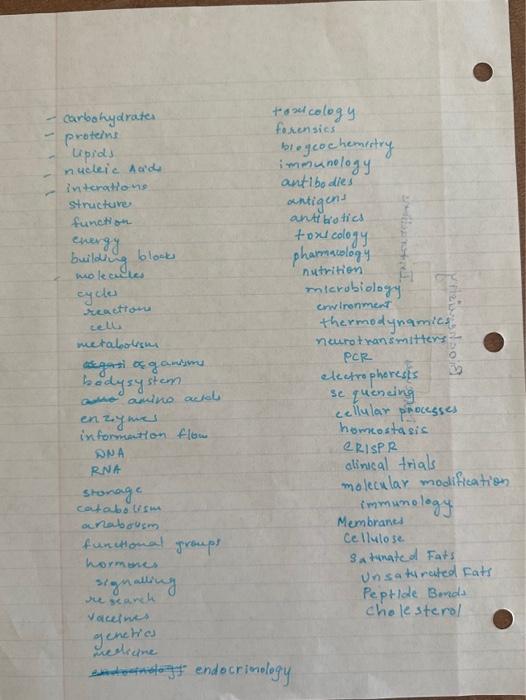 - carbohydrates
- proteins
- lipids
- nucleic Acids
- interations
structure
function
energy
building blocks
molecules
cycles
reactions
cells
metabolism
organisms
body system
amino acids
enzymes
information flow
DNA
RNA
storage
catabolism
anabolism
functional groups
hormones
signalling
research
vaccines
genetics
medicine
endocrinology
toxicology
forensics
biogeochemistry
immunology
antibodies
antigens
antibiotics
toxicology
pharmacology
nutrition
microbiology
environment
thermodynamics
neurotransmitters
PCR
electrophoresis
sequencing
cellular processes
homeostasis
CRISPR
clinical trials
molecular modification
immunology
Membranes
Cellulose
Saturated Fats
Unsaturated Fats
Peptide Bonds
Cholesterol